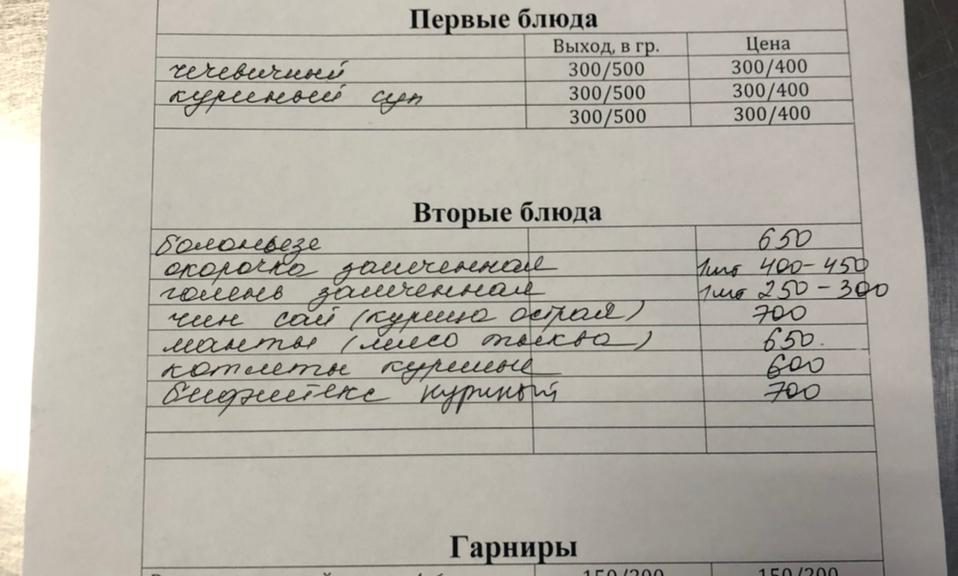 Первые блюда
Выход, в гр. Цена
чечевичный 300/500 300/400
куриный суп 300/500 300/400
300/500 300/400
Вторые блюда
болоньезе 650
окорочка запеченная 1шт 400-450
голень запеченная 1шт 250-300
чин сай (курица острая) 700
манты (мясо тыква) 650.
котлеты куриные 600
бифштекс куриный 700
Гарниры
150/200 150/200